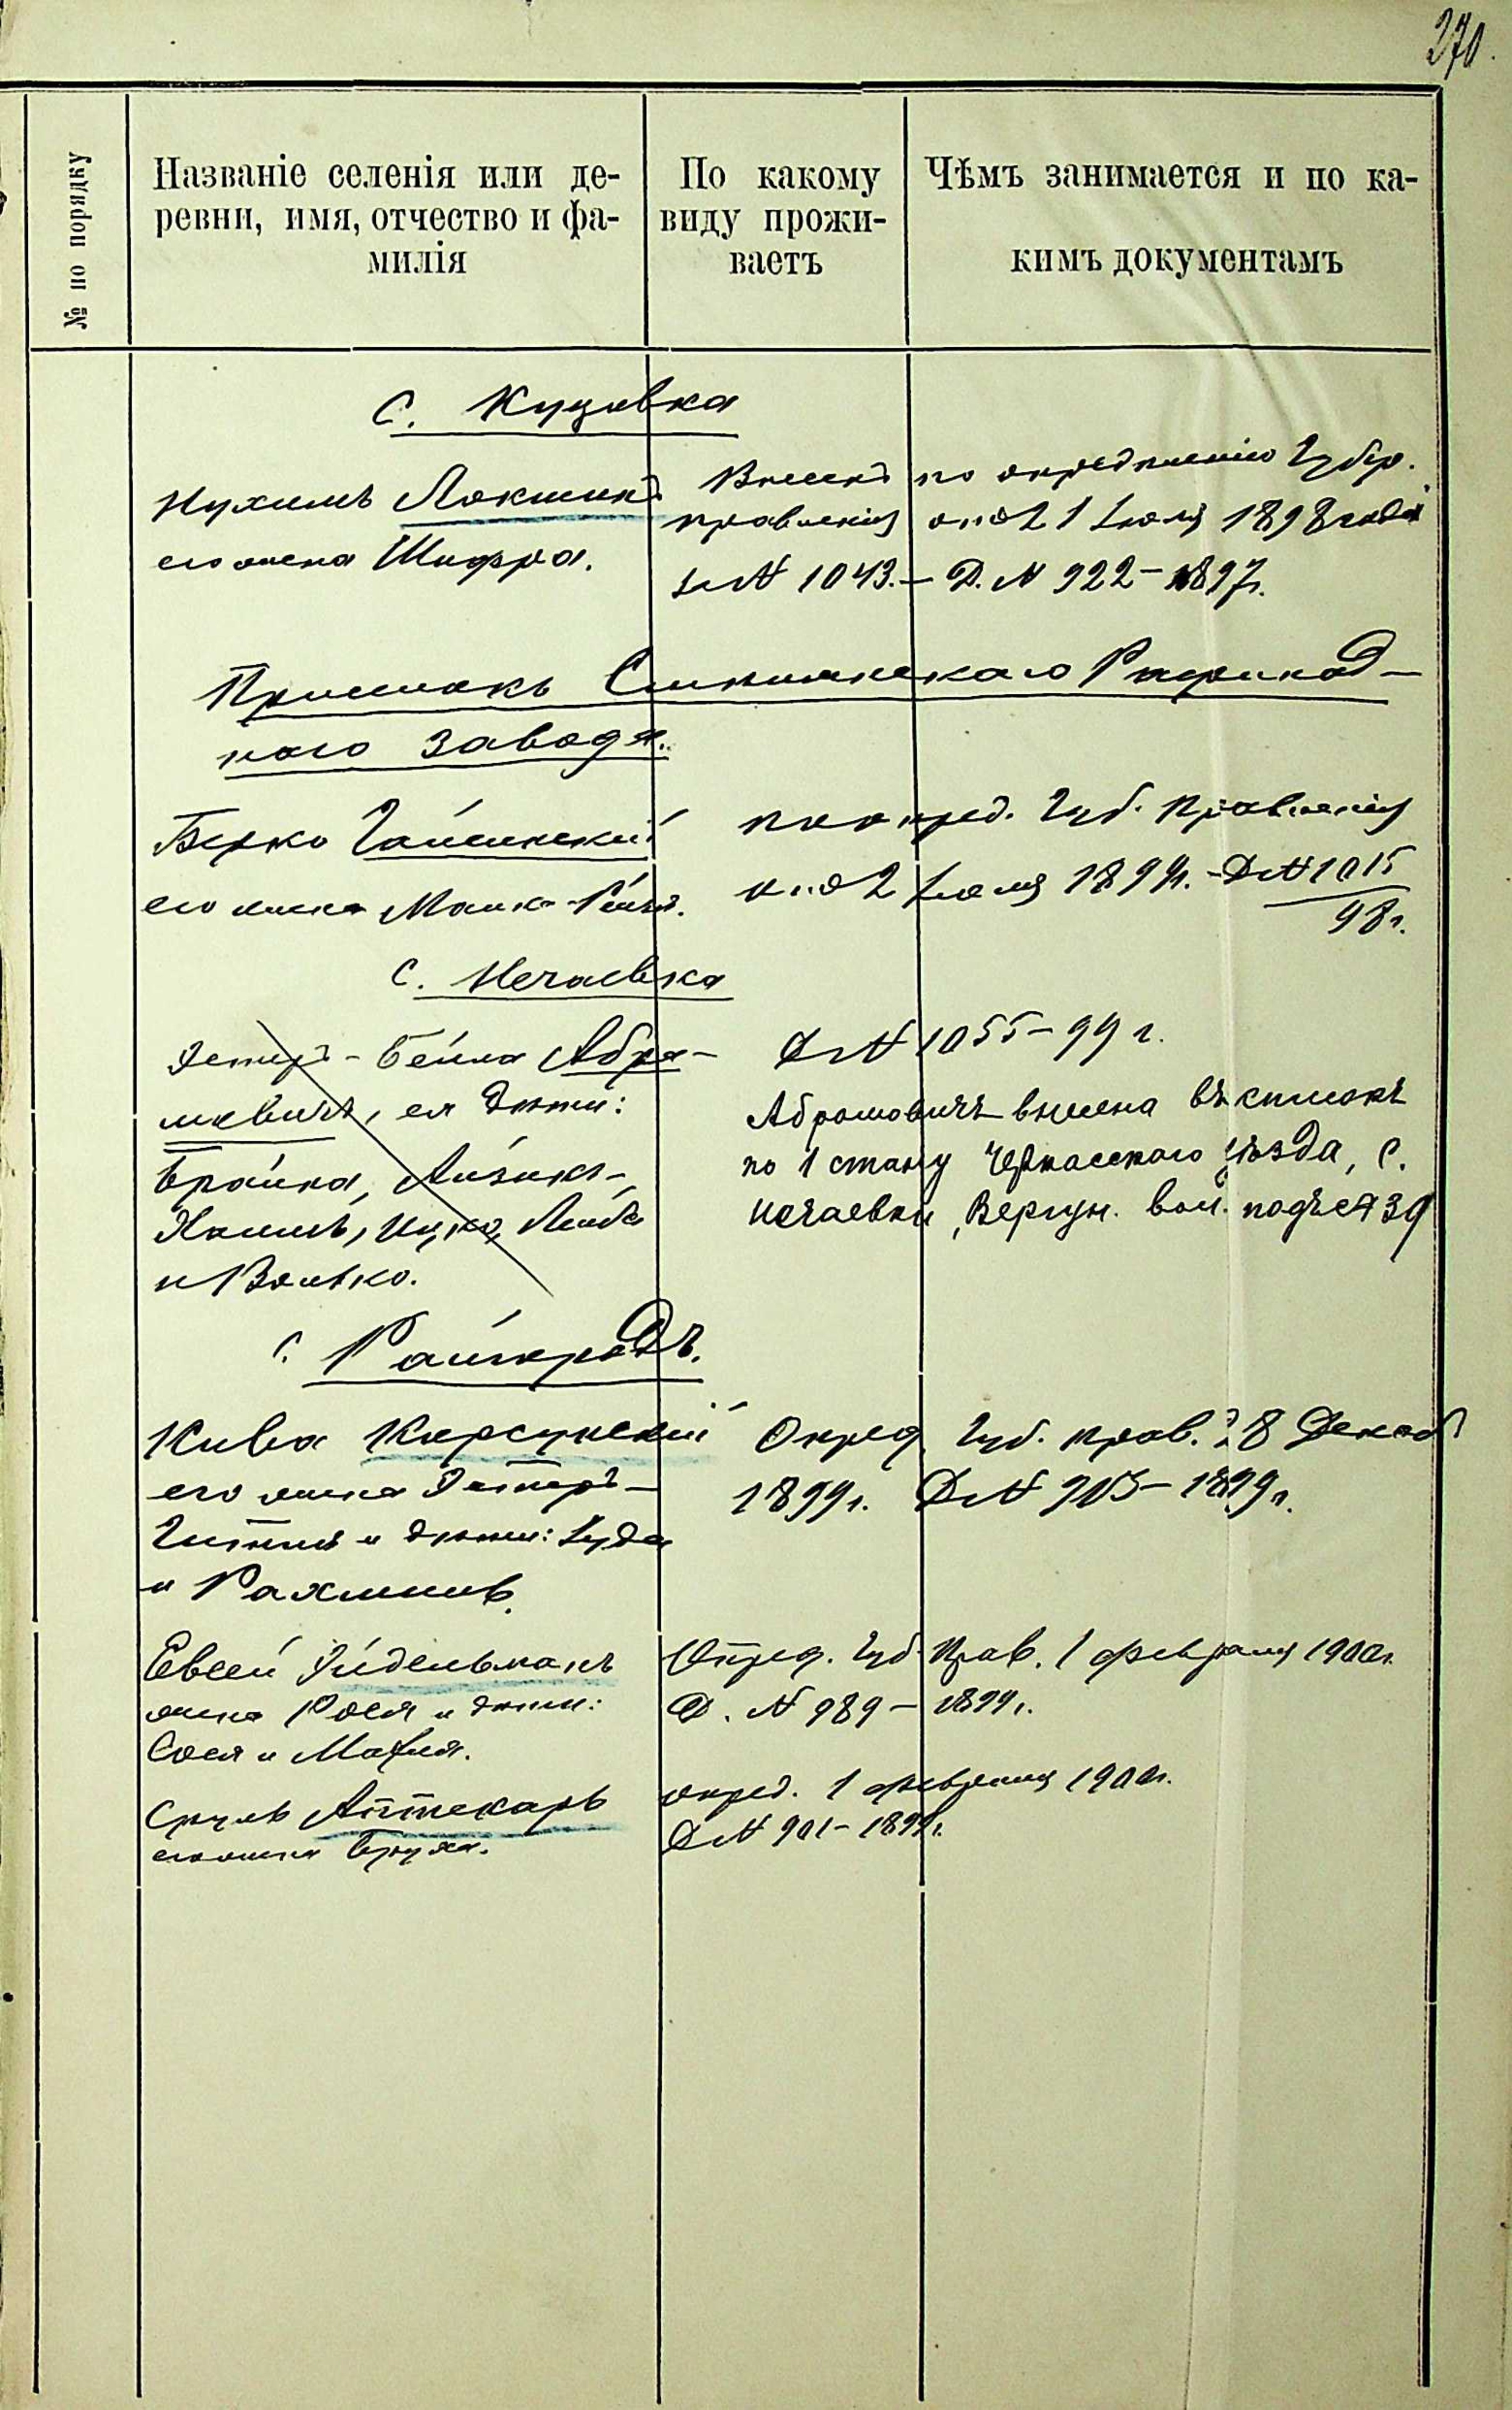 270.
№ по порядку
Названіе селенія или де-
ревни, имя, отчество и фа-
милія
По какому
виду прожи-
ваетъ
Чѣмъ занимается и по ка-
кимъ документамъ
С. Куцовка
Нухимъ Локшинъ
его жена Шифра.
Внесенъ по опредѣленію Губер.
правленія отъ 21 Іюля 1898 года
за № 1043. – Д. № 922 – 1897г.
Приселокъ Рафинад-
наго завода.
Берко Гайсинскій
его жена
по опред. Губ. Правленія
отъ 2 Іюля 1899г. – Д № 1015
98г.
С. Нечаевка
Эстеръ-Бейла Абра-
мовичъ, ея дѣти:
Брайна, Айзикъ-
Хаимъ, Ицко, Лейба
и Волько.
Д № 1055 – 99 г.
Абрамовичъ внесена въ списокъ
по 1 стану Черкасскаго уѣзда, с.
Нечаевки, Вергун. вол. подъ № 39
с. Райгродъ.
Кива Корсунскій
его жена Эстеръ-
Гитля и дѣти: Іуда
и Рахмиль.
Опред. Губ. прав. 28 Декаб
1899г. Д № 903 – 1899г.
Евсей Эйдельманъ
жена Рося и дѣти:
Сося и Мария.
Опред. Губ. Прав. 1 февраля 1900г.
Д. № 989 – 1899г.
Сруль Аптекарь
его жена Бруха.
опред. 1 февраля 1900г.
Д № 901 – 1899г.